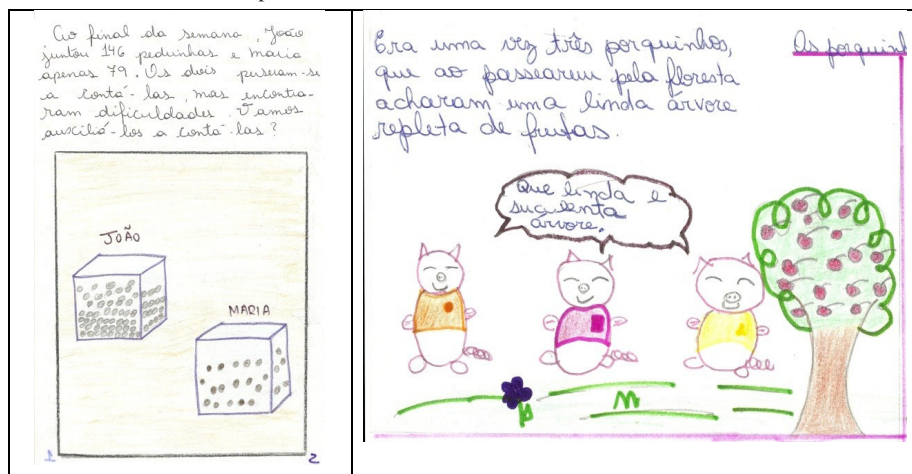 Ao final da semana, João
juntou 146 pedrinhas e Maria
apenas 79. Os dois puseram-se
a contá-las, mas encontra-
ram dificuldades. Vamos
auxiliá-los a contá-las?
JOÃO
MARIA
1
2
Era uma vez três porquinhos,
que ao passearem pela floresta
acharam uma linda árvore
repleta de frutas.
Os porquinh
Que linda e
suculenta
árvore.